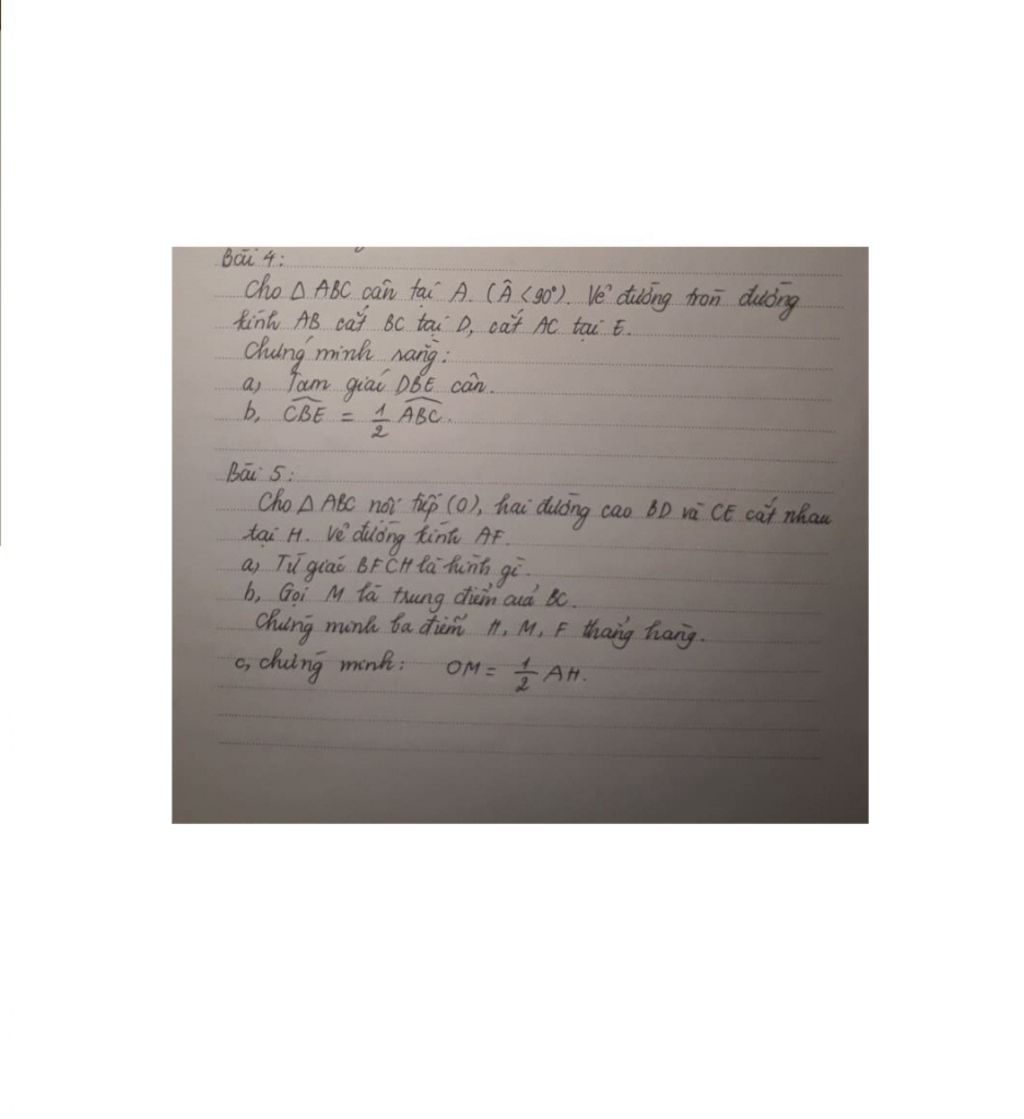 Bài 4:
Cho Δ ABC cân tại A. (Â < 90°). Vẽ đường tròn đường
kính AB cắt BC tại D, cắt AC tại E.
Chứng minh rằng:
a, Tam giác DBE cân.
b, CBE = 1/2 ABC.
Bài 5:
Cho Δ ABC nội tiếp (O), hai đường cao BD và CE cắt nhau
tại H. Vẽ đường kính AF.
a, Tứ giác BFCH là hình gì.
b, Gọi M là trung điểm của BC.
Chứng minh ba điểm H, M, F thẳng hàng.
c, chứng minh: OM = 1/2 AH.